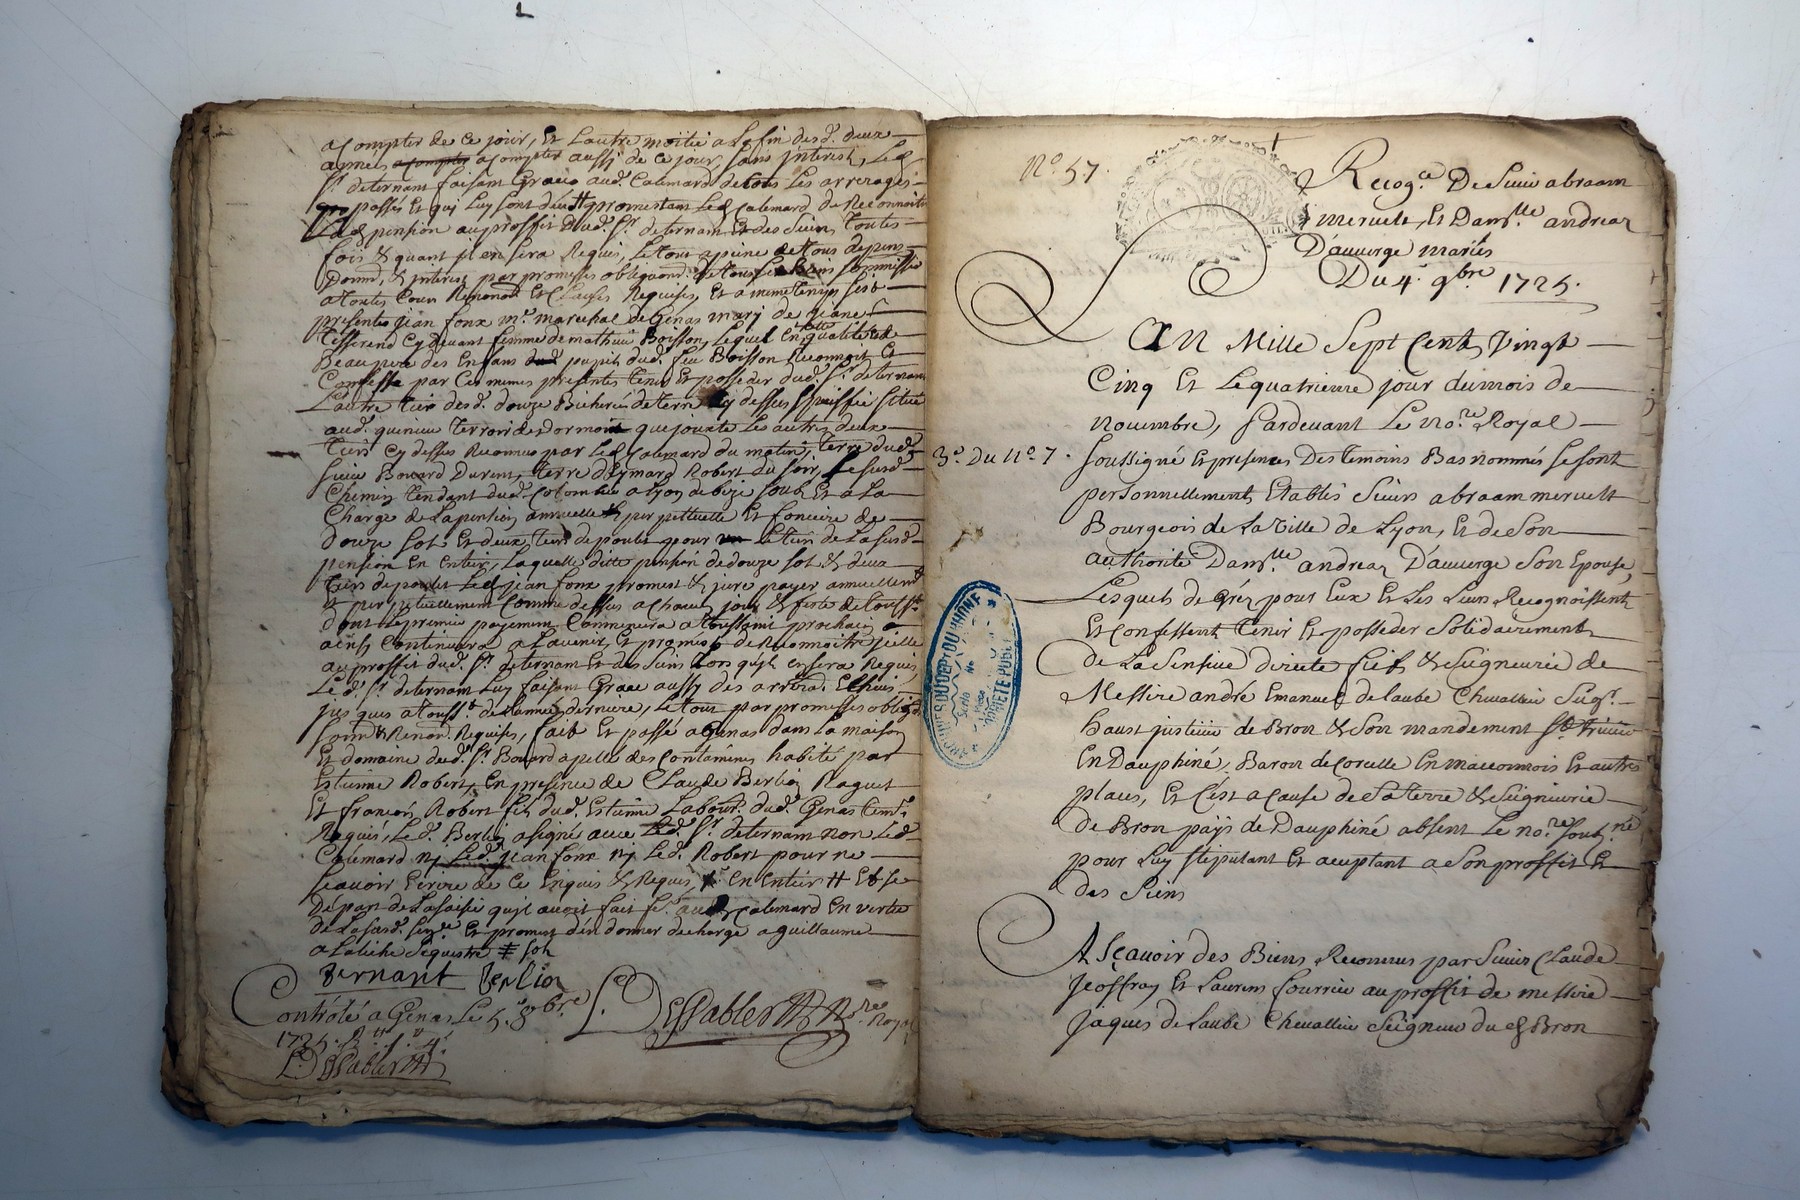 acompter de ce jour, Et Lautre moitié a La fin desd. deux
années acompter acompter aussi de ce jour, sans jnterest, Led.
Sr. deternant faisant Grace aud. Calemard de tous Les arrerages
passés Et qui Luy sont deus # promettant Led. Calemard de Reconnoitre
Lad. pension au proffit dud. Sr. deternant Et des Siens Toutes
fois & quant jl en sera Requis, Le tout a peine de tous depens
Domm. & jnterest par promesses obligaon. de tous ses biens soumission
atoutes Cours Renonon. Et Clauses Requises, Et a meme temps sest
presenté jean foux me. marechal de Genas mary de jeane
Tisserend Cy devant femme de mathieu Boisson, Lequel En qualité de
Beaupere des Enfans pupils dud. feu Boisson Reconnoit Et
Confesse par Ces memes presentes tenir Et posseder dud. Sr. deternant
Lautre tier desd. douze Bicherées de terre Cy dessus spesiffié situé
aud. que jouxte Les autres deux
tiers Cy dessus Reconnus par Led. Calemard du matin, terre dud.
Sieur Bouard Du vent, terre d'Eymard Robert du soir, Le susd.
Chemin tendant dud. Colombier a Lyon de bize soub Et a La
Charge de La pention annuelle perpettuelle Et fonciere de
douze sols Et deux tiers de poulet pour Le tier de La susd.
pension En Entier, Laquelle ditte pension de douze sols & deux
tiers de poulet Led. jean foux promest & jure payer annuellemt.
& perpetuellement Comme dessus a Chacun jour & feste de Toussts.
dont Le premier payement Commencera a Toussaint prochain &
ainsy Continuera a Lavenir, Et promest de Reconnoitre jcelle
au proffit dud. Sr. deternant Et des Siens Lors qu'jl en sera Requis,
Led. Sr. deternant Luy faisant Grace aussy des arrera. Echuis
jusques a Tousst. de Lannée derniere, Le tout par promesses oblig.
soum. & Renon. Requises, fait Et passé a Genas dans La maison
Et domaine dud. Sr. Bouard apellé des Contamines habité par
Estienne Robert, En presence de Claude Berlion
Et françois Robert fils dud. Estienne Labourr. dud. Genas temts.
Requis, Led. Berlion a signé avec Led. Sr. deternant non Led.
Calemard ny Led. jean foux ny Led. Robert pour ne
sçavoir Ecrire de Ce Enquis & Requis, en Entier # Et se
depart de La saisie qu'jl avoit fait fe. aud. Calemard En vertu
de La sd. Et promest d'en donner decharge a guillaume
sequestre # son
Ternant Berlion
Contrôlé a Genas Le 5e. 9bre.
1725. R.
L. DEssablettes
L. DEssablettes Nore. Royal
No. 57.
Recogce. De Sieur abraam
meruelt, Et Damlle. andrea
D'auverge mariés
Du 4e. 9bre. 1725.
Lan Mille Sept Cents Vingt
Cinq Et Le quatrieme jour du mois de
Novembre, Pardevant Le Nore. Royal
3e. Du No. 7.
soussigné Et presences Des temoins Bas nommés se sont
personnellement Etablis Sieurs abraam meruelt
Bourgeois de La Ville de Lyon, Et de Son
authorité Damlle. andrea D'auverge Son Epouse,
Lesquels de gréz pour Eux Et Les Leurs Recognoissent
Et Confessent Tenir Et posseder Solidairement
de La Sensive directe fief & Seigneurie de
Messire andré Emanuel de Laube Chevallier Seigr.
haust justicier de Bron & Son mandement
En Dauphiné, Baron de Corcelle En maconnois Et autres
places, Et C'est a Cause de Sa terre & Seigneurie
De Bron païs de Dauphiné absent Le nore. Soubsné.
pour Luy stipulant Et acceptant a Son proffit Et
des Siens
A Sçavoir des Biens Reconnus par Sieurs Claude
Jeoffray Et Laurens fourrier au proffit de messire
jaques de Laube Chevallier Seigneur dud. Bron